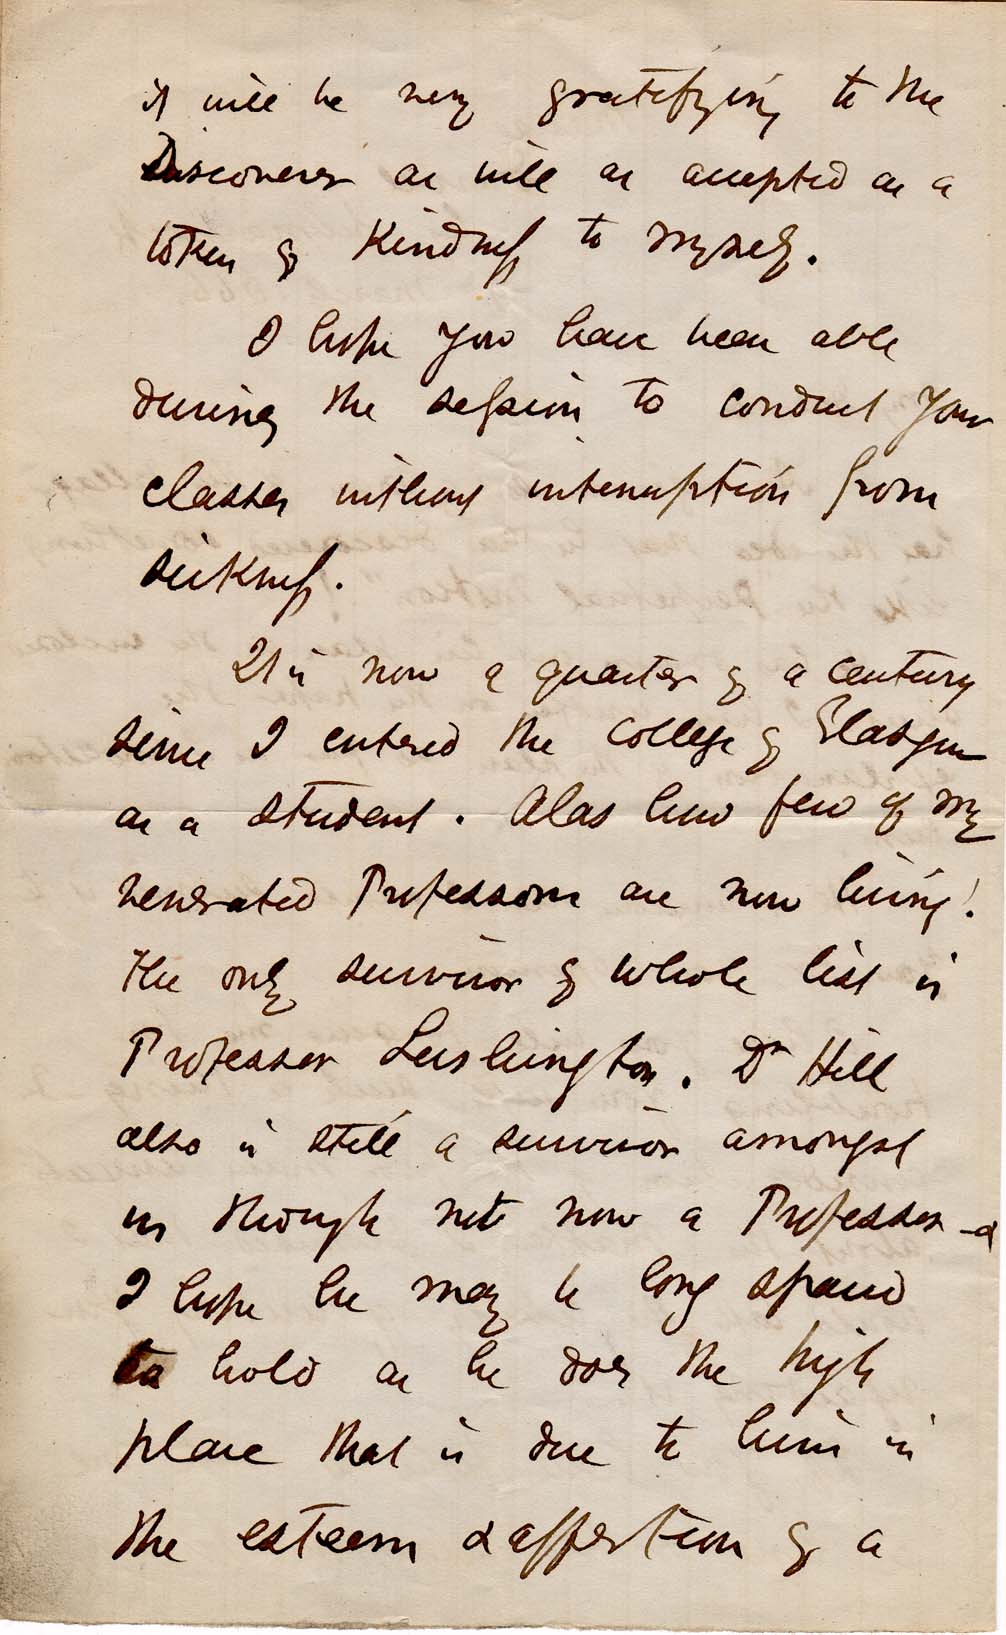 it will be very gratifying to the
Discoverer as well as accepted as a
token of Kindness to myself.
I hope you have been able
during the session to conduct your
classes without interruption from
sickness.
It is now a quarter of a century
since I entered the College of Glasgow
as a student. Alas how few of my
venerated Professors are now living!
The only survivor of whole list is
Professor Lushington. Dr Hill
also is still a survivor amongst
us though not now a Professor - &
I hope he may be long spared
to hold as he does the high
place that is due to him in
the esteem & affection of a